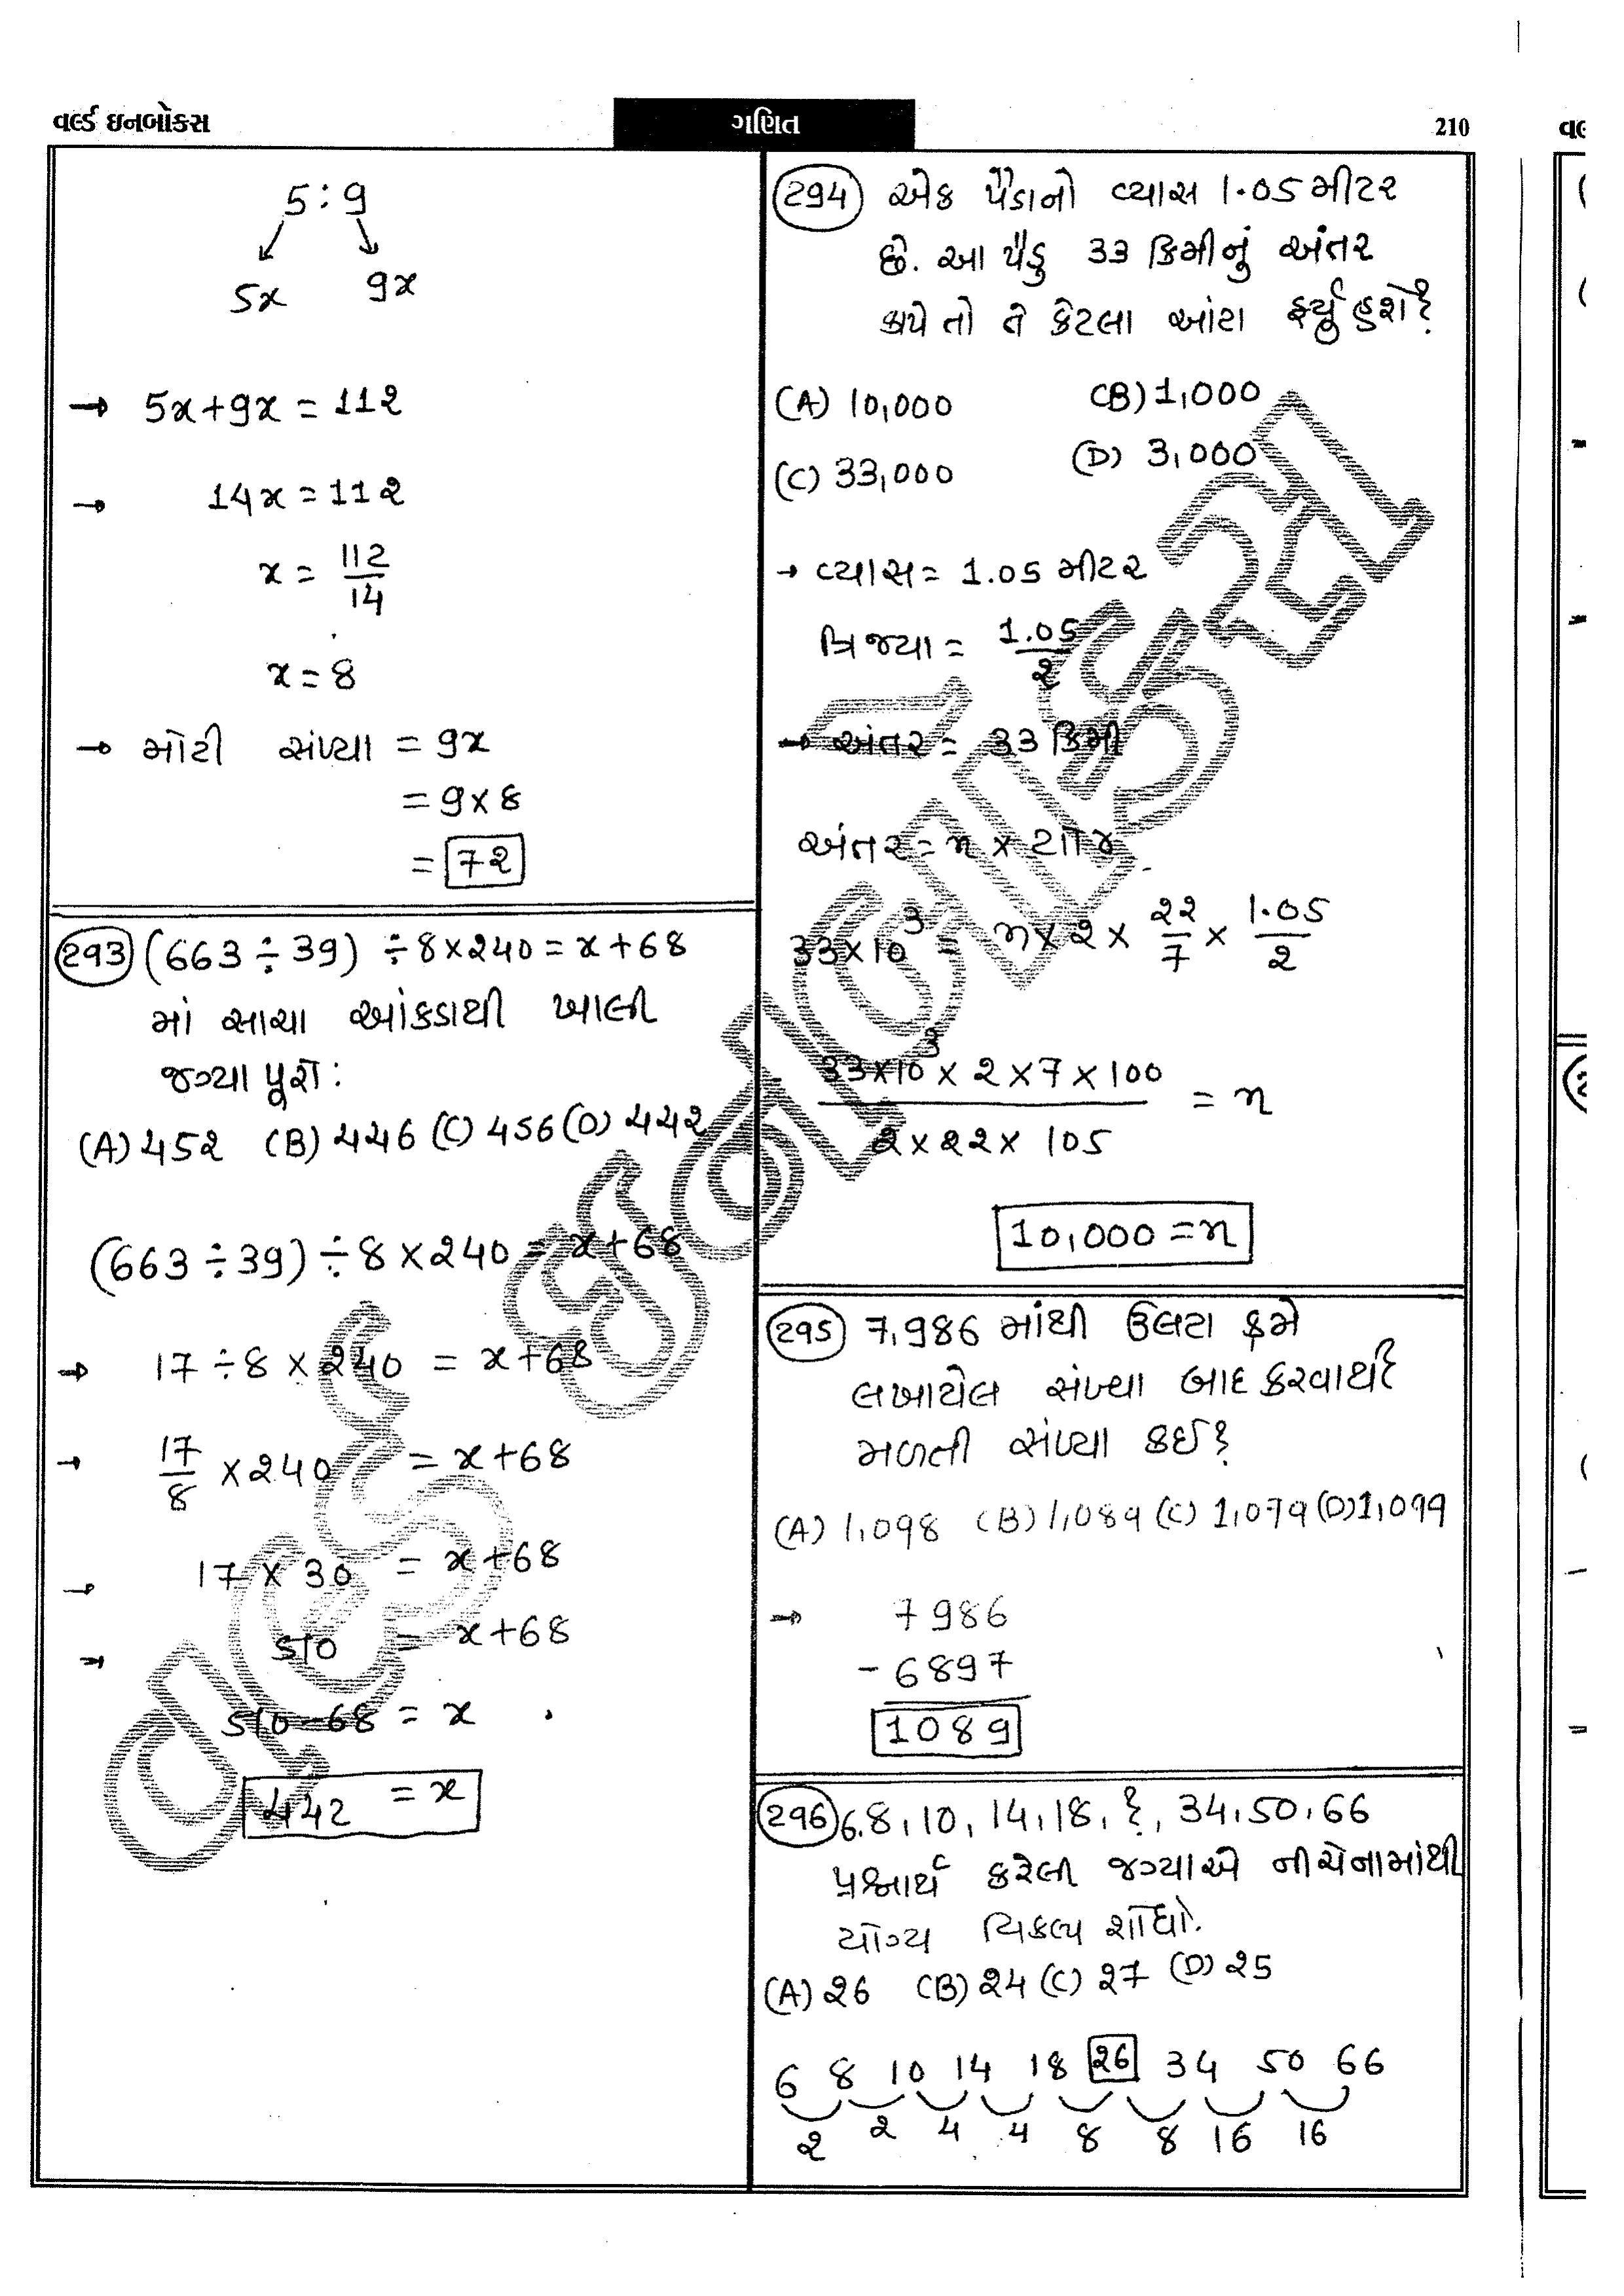 વર્લ્ડ ઇનબોક્સ
ગણિત
210
5 : 9
5x 9x
→ 5x+9x = 112
→ 14x = 112
x = 112/14
x = 8
→ મોટી સંખ્યા = 9x
= 9 x 8
= 72
293 (663 ÷ 39) ÷8×240 = x+68
માં સાચા આંકડાથી ખાલી
જગ્યા પૂરો :
(A) 452 (B) 446 (C) 456 (D) 442
(663 ÷ 39) ÷ 8 × 240 = x+68
→ 17 ÷ 8 × 240 = x+68
→ 17/8 × 240 = x+68
→ 17 × 30 = x+68
→ 510 = x+68
510-68 = x
442 = x
294 એક પૈડાનો વ્યાસ 1.05 મીટર
છે. આ પૈડુ 33 કિમીનું અંતર
કાપે તો તે કેટલા આંટા ફર્યુ હશે?
(A) 10,000 (B) 1,000
(C) 33,000 (D) 3,000
→ વ્યાસ = 1.05 મીટર
ત્રિજ્યા = 1.05/2
→ અંતર = 33 કિમી
અંતર = n × 2πr
33×10³ = n × 2 × 22/7 × 1.05/2
33×10³ × 2 × 7 × 100 / 2 × 22 × 105 = n
10,000 = n
295 7,986 માંથી ઉલટા ક્રમે
લખાયેલ સંખ્યા બાદ કરવાથી
મળતી સંખ્યા કઈ?
(A) 1,098 (B) 1,089 (C) 1,079 (D) 1,099
→ 7986
- 6897
1089
296 6,8,10,14,18,?,34,50,66
પ્રશ્નાર્થ કરેલી જગ્યાએ નીચેનામાંથી
યોગ્ય વિકલ્પ શોધો.
(A) 26 (B) 24 (C) 27 (D) 25
6 8 10 14 18 26 34 50 66
2 2 4 4 8 8 16 16
વર્લ્ડ ઇનબોક્સ